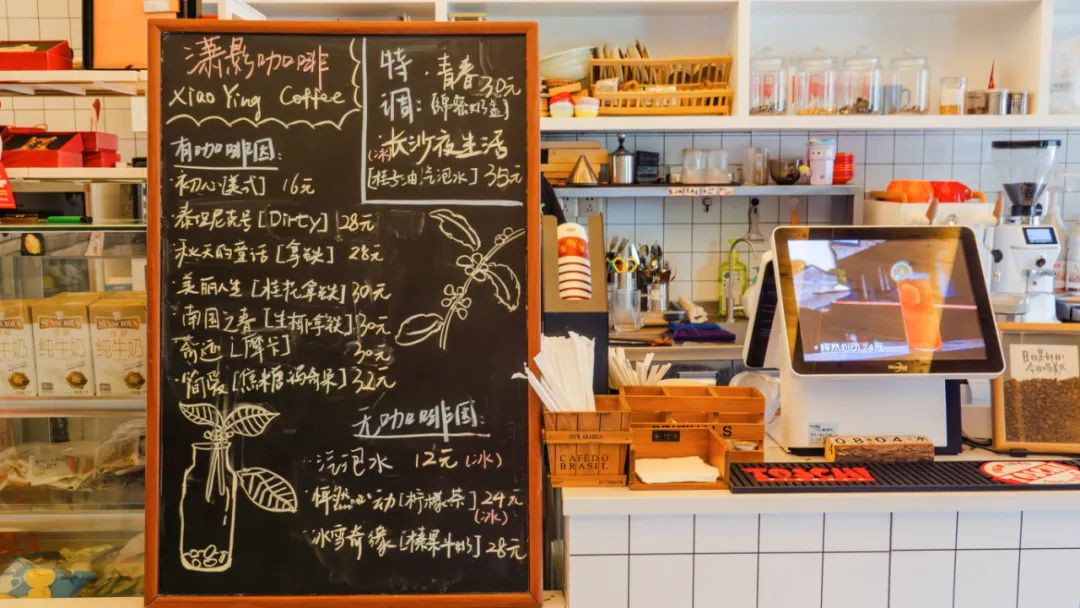 潇影咖啡
Xiao Ying Coffee
有咖啡因:
·初心[美式] 16元
·泰坦尼克号[Dirty] 28元
·秋天的童话[拿铁] 28元
·美丽人生[桂花拿铁] 30元
·南国之春[生椰拿铁] 30元
·奇迹[摩卡] 30元
·简爱[焦糖玛奇朵] 32元
无咖啡因:
·汽泡水 12元(冰)
·怦然心动[柠檬茶] 24元
(冰)
·冰雪奇缘[榛果牛奶] 28元
特调:
·青春 30元
·长沙夜生活
(冰)
汽泡水] 35元
纯牛奶
纯牛奶
纯牛奶
·怦然心动 24元
CAFÉ DO
BRASIL
08-04